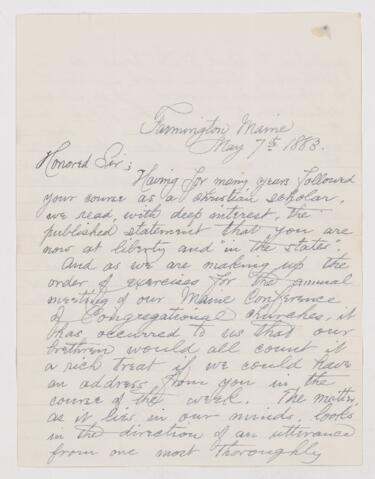 Farmington Maine
May 7th 1883.
Honored Sir;
Having for many years followed
your course as a christian scholar,
we read, with deep interest, the
published statement that you are
now at liberty and "in the states".
And as we are making up the
order of exercises for the annual
meeting of our Maine Conference
of Congregational churches, it
has occurred to us that our
brethren would all count it
a rich treat if we could have
an address from you in the
course of the week. The matter,
as it lies in our minds, looks
in the direction of an utterance
from one most thoroughly